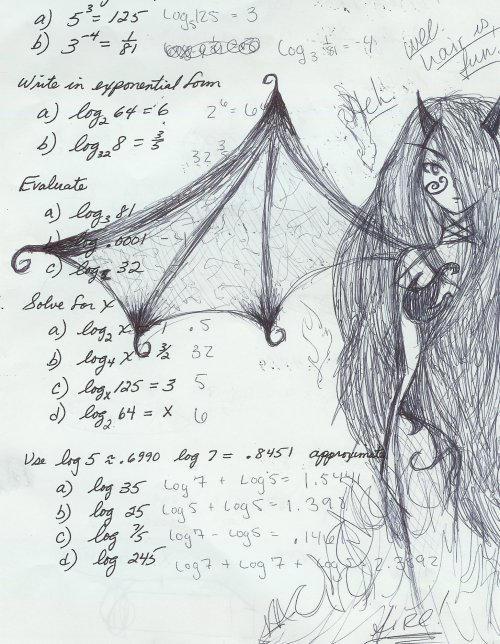 a) 5³ = 125 log₅125 = 3
b) 3⁻⁴ = 1/81 log₃ 1/81 = -4
well
hair is
fun
Write in exponential form
a) log₂ 64 = 6 2⁶ = 64
b) log₃₂ 8 = 3/5 32
Evaluate
a) log₃ 81
b) log .0001 -4
c) log₂ 32
Solve for x
a) log₂ x 1 .5
b) log₄ x 3/2 32
c) logₓ 125 = 3 5
d) log₂ 64 = x 6
Use log 5 ≈ .6990 log 7 = .8451 approximate
a) log 35 log 7 + log 5 = 1.5441
b) log 25 log 5 + log 5 = 1.398
c) log 7/5 log 7 - log 5 = .146
d) log 245 log 7 + log 7 + log 2.3892
fire!